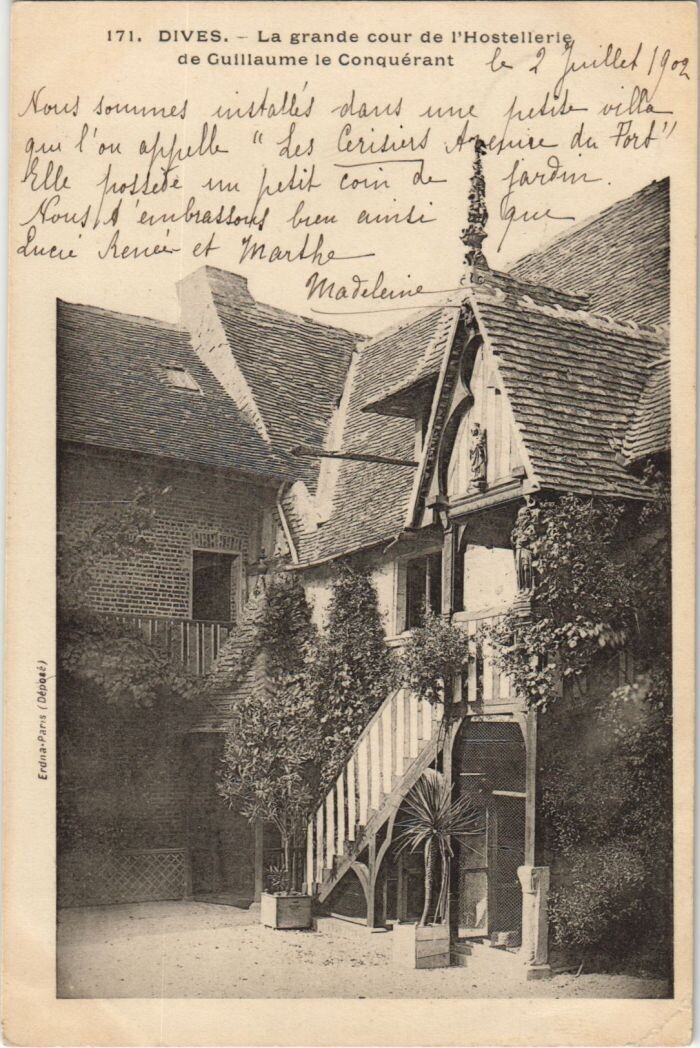 171. DIVES. - La grande cour de l'Hostellerie
de Guillaume le Conquérant
le 2 Juillet 1902
Nous sommes installés dans une petite villa
que l'on appelle "Les Cerisiers Avenue du Port"
Elle possède un petit coin de jardin.
Nous t'embrassons bien ainsi que
Lucie Renée et Marthe
Madeleine
Erdna-Paris (Déposé)